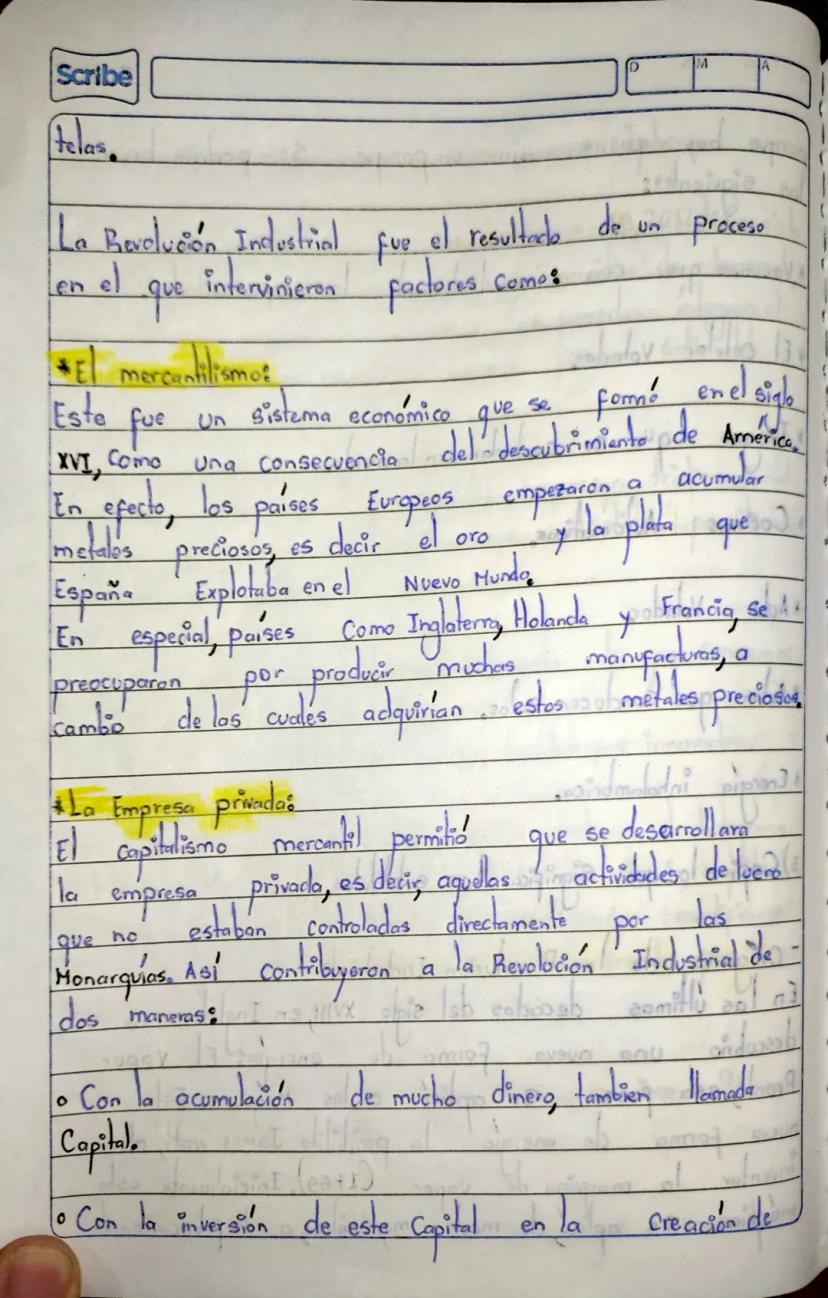 Scribe
D M A
telas.
La Revolución Industrial fue el resultado de un proceso
en el que intervinieron factores como:
*El mercantilismo:
Este fue un sistema económico que se formó en el siglo
XVI, Como una consecuencia del descubrimiento de América.
En efecto, los países Europeos empezaron a acumular
metales preciosos, es decir el oro y la plata que
España Explotaba en el Nuevo Mundo.
En especial, países Como Inglaterra, Holanda y Francia, se
preocuparon por producir muchas manufacturas, a
cambio de las cuales adquirían estos metales preciosos.
*La Empresa privada:
El capitalismo mercantil permitió que se desarrollara
la empresa privada, es decir, aquellas actividades de lucro
que no estaban controladas directamente por las
Monarquías. Así contribuyeron a la Revoloción Industrial de
dos maneras:
o Con la acumulación de mucho dinero, tambien llamada
Capital.
o Con la inversión de este Capital en la Creación de